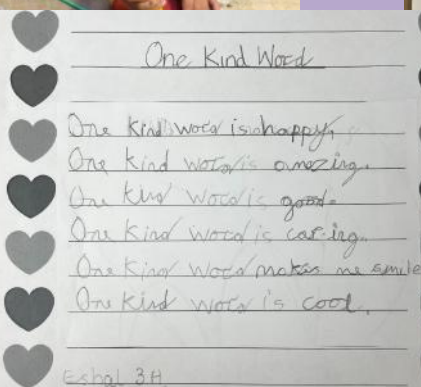 One Kind Word
One kind word is happy.
One kind word is amazing.
One kind word is good.
One kind word is caring.
One kind word makes me smile
One kind word is cool.
Eshal 3H